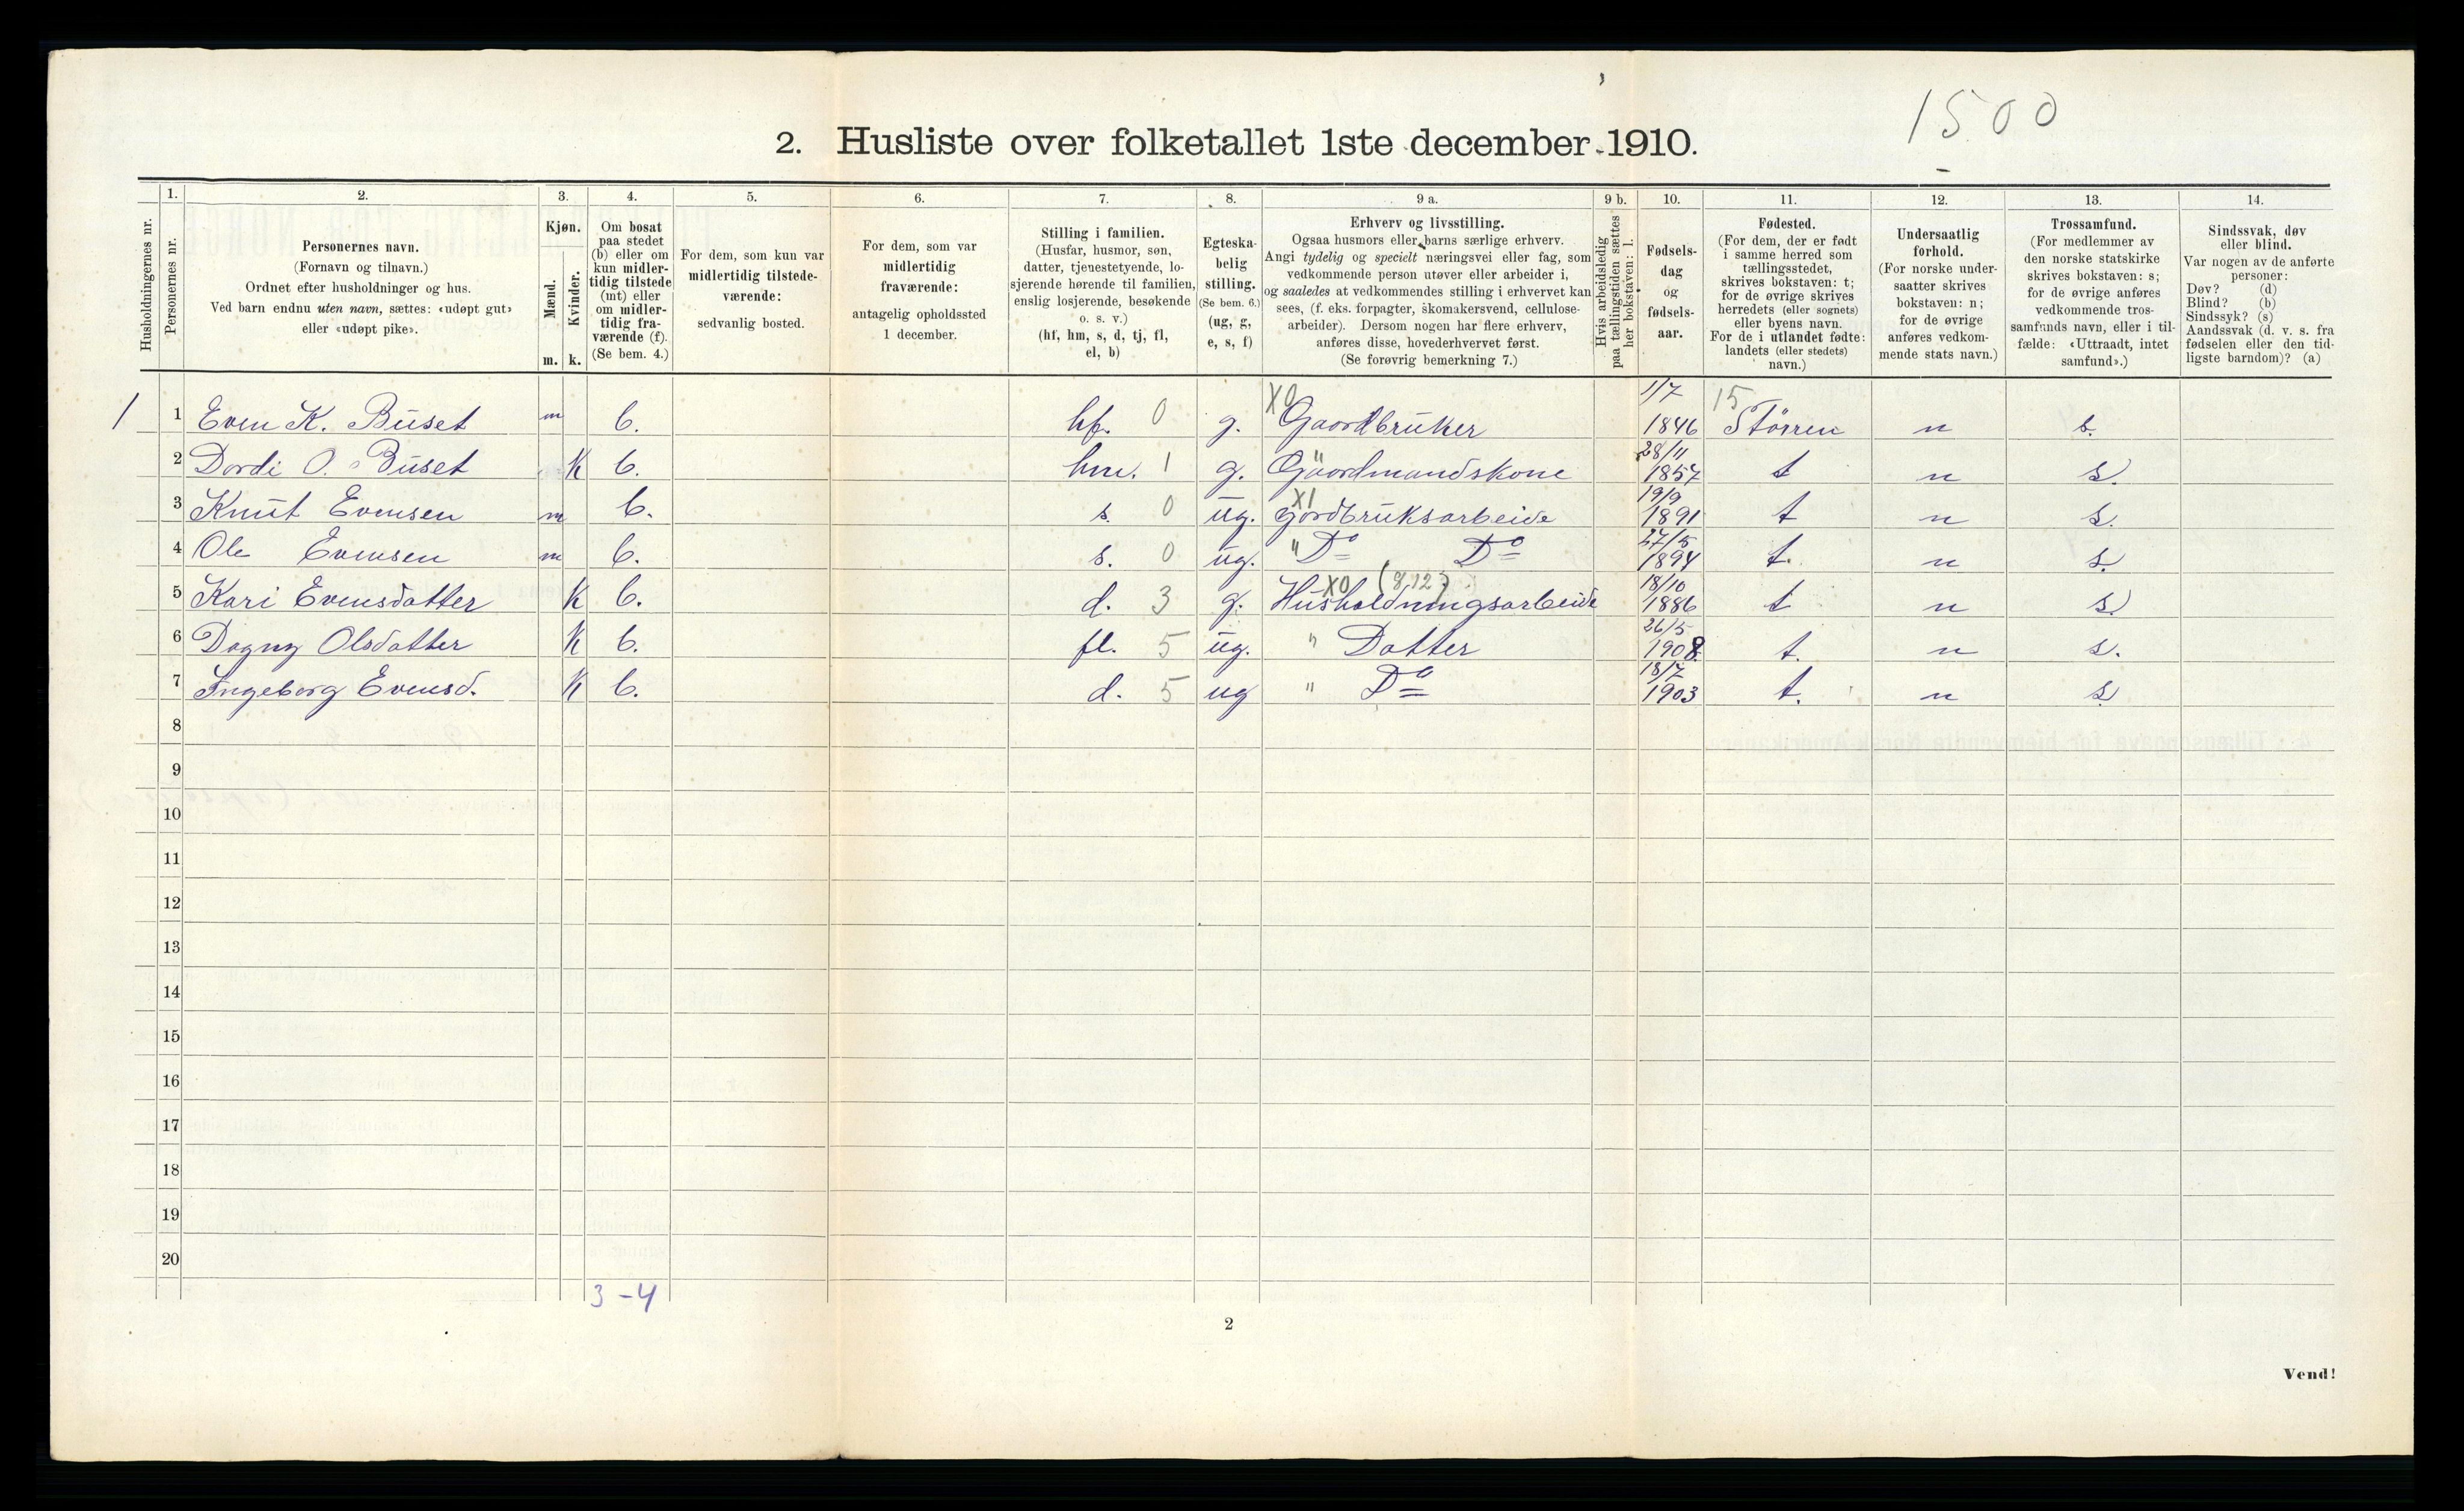 1500
2. Husliste over folketallet 1ste december 1910.
Husholdningernes nr.
1.
Personernes nr.
2.
Personernes navn.
(Fornavn og tilnavn.)
Ordnet efter husholdninger og hus.
Ved barn endnu uten navn, sættes: «udøpt gut»
eller «udøpt pike».
3.
Kjøn.
Mænd.
Kvinder.
m. k.
4.
Om bosat
paa stedet
(b) eller om
kun midler-
tidig tilstede
(mt) eller
om midler-
tidig fra-
værende (f).
(Se bem. 4.)
5.
For dem, som kun var
midlertidig tilstede-
værende:
sedvanlig bosted.
6.
For dem, som var
midlertidig
fraværende:
antagelig opholdssted
1 december.
7.
Stilling i familien.
(Husfar, husmor, søn,
datter, tjenestetyende, lo-
sjerende hørende til familien,
enslig losjerende, besøkende
o. s. v.)
(hf, hm, s, d, tj, fl,
el, b)
8.
Egteska-
belig
stilling.
(Se bem. 6.)
(ug, g,
e, s, f)
9 a.
Erhverv og livsstilling.
Ogsaa husmors eller barns særlige erhverv.
Angi tydelig og specielt næringsvei eller fag, som
vedkommende person utøver eller arbeider i,
og saaledes at vedkommendes stilling i erhvervet kan
sees, (f. eks. forpagter, skomakersvend, cellulose-
arbeider). Dersom nogen har flere erhverv,
anføres disse, hovederhvervet først.
(Se forøvrig bemerkning 7.)
9 b.
Hvis arbeidsledig
paa tællingstiden sættes
her bokstaven: l.
10.
Fødsels-
dag
og
fødsels-
aar.
11.
Fødested.
(For dem, der er født
i samme herred som
tællingsstedet,
skrives bokstaven: t;
for de øvrige skrives
herredets (eller sognets)
eller byens navn.
For de i utlandet fødte:
landets (eller stedets)
navn.)
12.
Undersaatlig
forhold.
(For norske under-
saatter skrives
bokstaven: n;
for de øvrige
anføres vedkom-
mende stats navn.)
13.
Trossamfund.
(For medlemmer av
den norske statskirke
skrives bokstaven: s;
for de øvrige anføres
vedkommende tros-
samfunds navn, eller i til-
fælde: «Uttraadt, intet
samfund».)
14.
Sindssvak, døv
eller blind.
Var nogen av de anførte
personer:
Døv? (d)
Blind? (b)
Sindssyk? (s)
Aandssvak (d. v. s. fra
fødselen eller den tid-
ligste barndom)? (a)
X0 1/7 15
1 1 Even K. Buset m b. hf. 0 g. Gaordbruker 1846 Stören n s.
28/11
2 Dordi O. Buset K b. hm. 1 g. Gaordmandskone 1857 t n s.
X1 19/9
3 Knut Evensen m b. s. 0 ug. gordbruksarbeide 1891 t n s.
27/5
4 Ole Evensen m b. s. 0 ug. " Do Do 1894 t. n s.
X0 (8,12) 18/10
5 Kari Evensdatter K b. d. 3 g. Husholdningsarbeide 1886 t n s
26/5
6 Dagny Olsdatter K b. fl. 5 ug. " Datter 1908 t. n s.
18/7
7 Ingeborg Evensd. K b. d. 5 ug " Do 1903 t. n s
8
9
10
11
12
13
14
15
16
17
18
19
20
3-4
2
Vend!